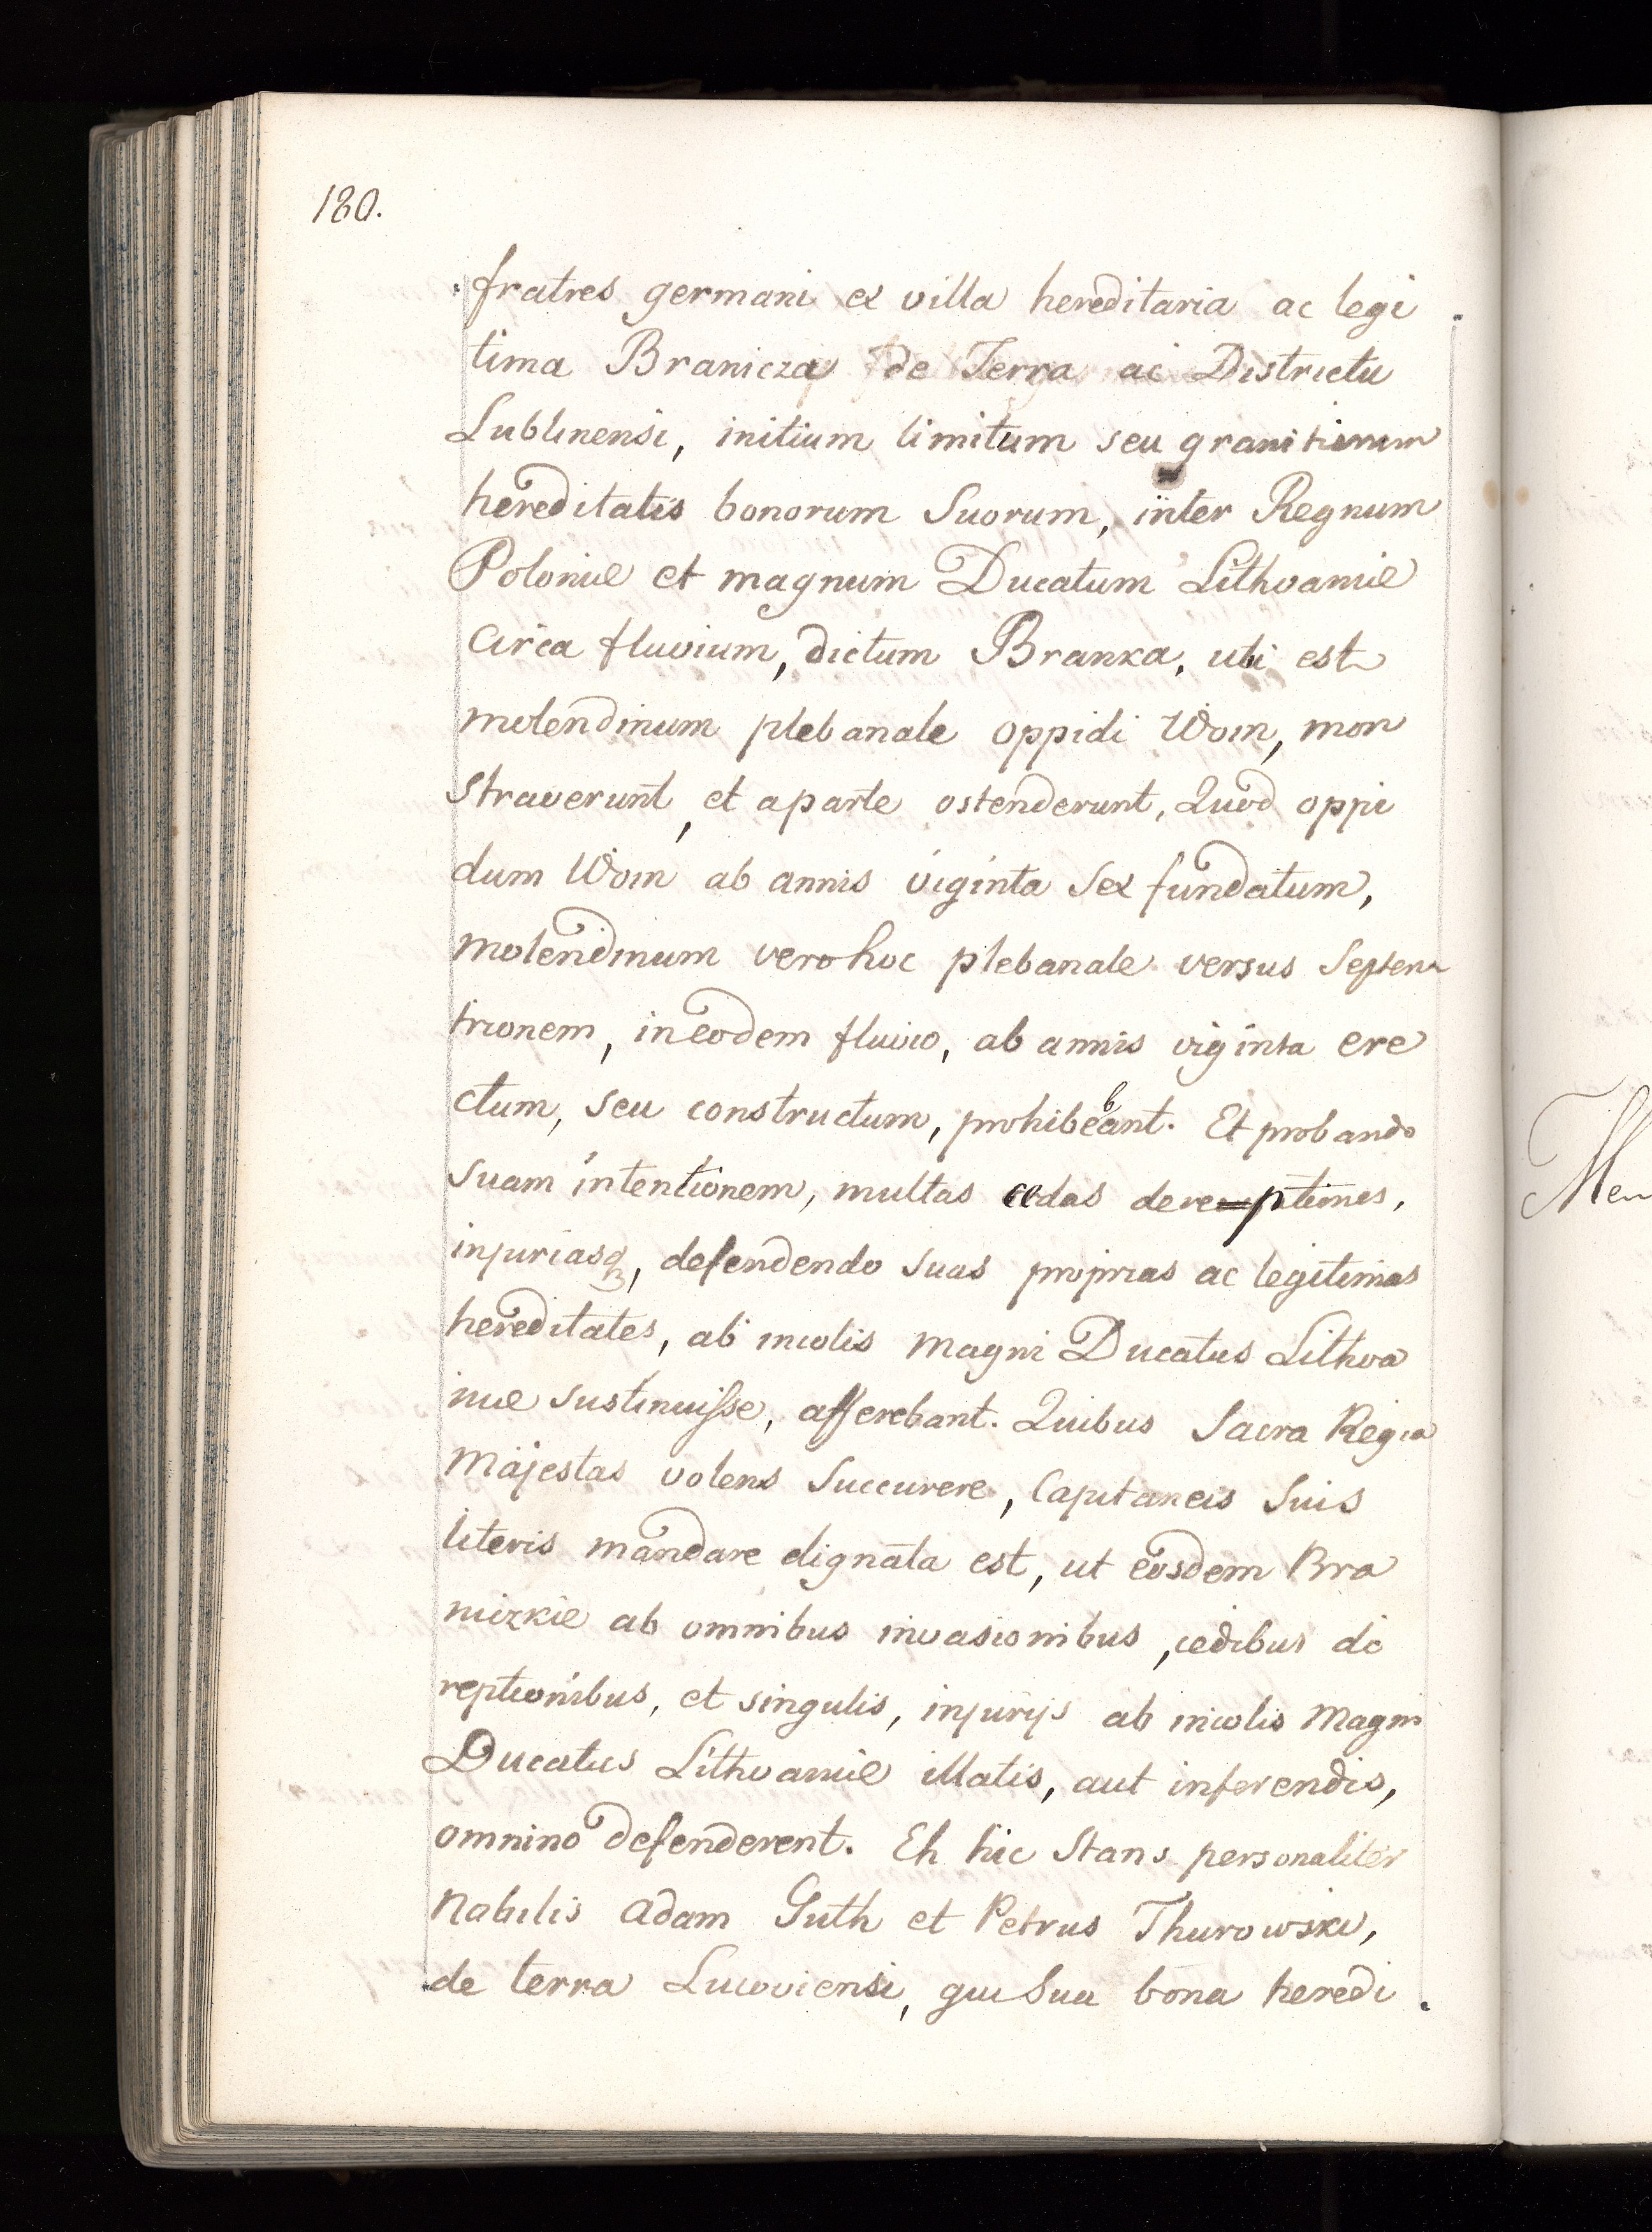 180.
fratres germani ex villa hereditaria ac legi
tima Branicza de Terra ac Districtu
Lublinensi, initium limitum seu granitierum
hereditatis bonorum Suorum, inter Regnum
Polonie et magnum Ducatum Lithvanie
circa fluvium, dictum Branka, ubi est
molendinum plebanale oppidi Woin, mon
straverunt, et aparte ostenderunt, Quod oppi
dum Woin ab annis viginta Sex fundatum,
molendinum vero hoc plebanale versus Septen
trionem, in eodem fluvio, ab annis viginta ere
ctum, seu constructum, prohibebant. Et probando
suam intentionem, multas cedas dereptiones,
injuriasq, defendendo suas proprias ac legitimas
hereditates, ab incolis magni Ducatus Lithva
nie sustinuisse, asserebant. Quibus Sacra Regia
Majestas volens Succurere, Capitaneis Suis
literis mandare dignata est, ut eosdem Bra
nizkie ab omnibus invasionibus, cedibus de
reptionibus, et singulis, injurijs ab incolis Magni
Ducatus Lithvanie illatis, aut inferendis,
omnino defenderent. Eh hic Stans personaliter
Nabilis Adam Guth et Petrus Thurowski,
de terra Lucoviensi, qui Sua bona heredi
Men